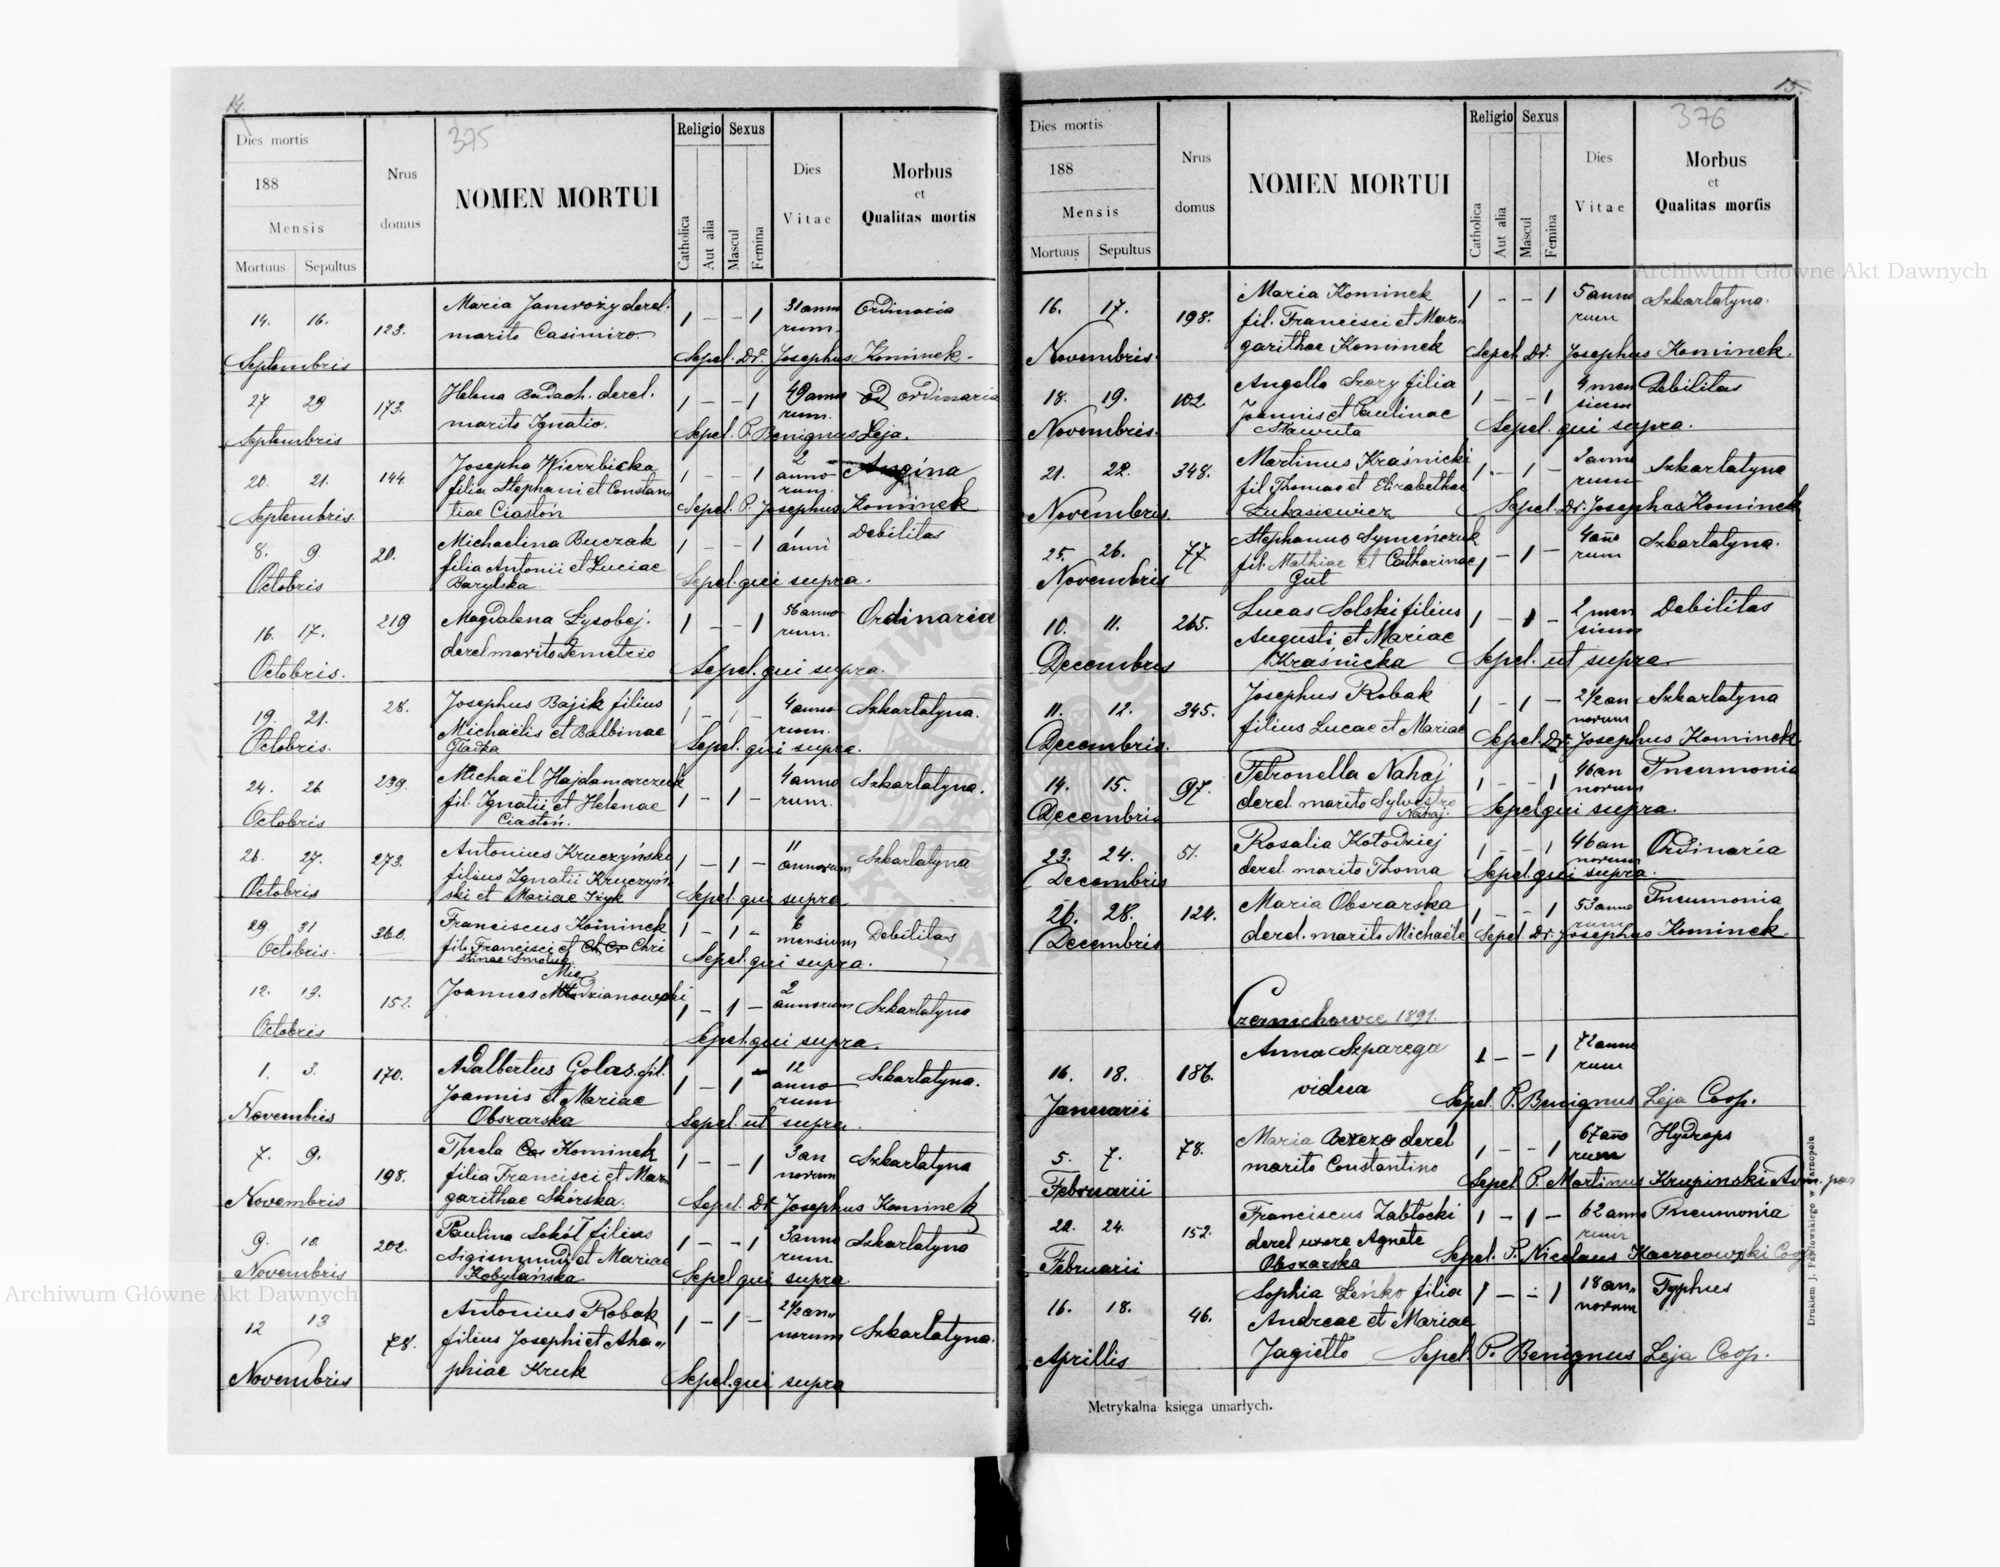 14.
375
Dies mortis
188
Mensis
Mortuus Sepultus
Nrus
domus
NOMEN MORTUI
Religio Sexus
Catholica
Aut alia
Mascul
Femina
Dies
Vitae
Morbus
et
Qualitas mortis
14. 16. 123. Maria Janwoży derel. 1 – – 1 31 anno Ordinaria
Septembris marito Casimiro rum.
Sepel. Dr. Josephus Kominek.
27 29 173. Helena Badach. derel. 1 – – 1 49 anno ordinaria
Septembris marito Ignatio. rum.
Sepel. P. Benignus Leja.
20. 21. 144 Josepha Wierzbicka 1 – – 1 2 anno Angina
Septembris. filia Stephani et Constan rum.
tiae Ciastoń Sepel. P. Josephus Kominek
8. 9. 20. Michaelina Buczak 1 – – 1 1 anni Debilitas
Octobris filia Antonii et Luciae
Barylska Sepel. qui supra.
16. 17. 219 Magdalena Łysobej. 1 – – 1 56 anno Ordinaria
Octobris. derel marito Demetrio rum.
Sepel. qui supra.
19. 21. 28. Josephus Bajik filius 1 – 1 – 4 anno Szkarlatyna.
Octobris. Michaëlis et Balbinae rum.
Gładka Sepel. qui supra.
24. 26 239. Michaël Hajdamarczuk 1 – 1 – 4 anno Szkarlatyna.
Octobris fil. Ignatii et Helenae rum.
Ciastoń.
26. 27. 273. Antonius Kruczyński 1 – 1 – 11 annorum Szkarlatyna
Octobris filius Ignatii Kruczyń
ski et Mariae Iżyk Sepel. qui supra
29 31 360. Franciscus Kominek 1 – 1 – 6 mensium Debilitas
Octobris. fil. Francisci et Chri
stinae Smolak Sepel. qui supra.
12. 13. 152. Joannes Młodzianowski 1 – 1 – 2 annorum Szkarlatyna
Mie
Octobris Sepel. qui supra.
1. 3. 170. Adalbertus Golas. fil. 1 – 1 – 12 anno Szkarlatyna.
Novembris Joannis et Mariae rum
Obszarska Sepel. ut supra.
7. 9. 198. Thecla Kominek 1 – – 1 3 an Szkarlatyna
Novembris filia Francisci et Mar norum
garithae Skórska. Sepel. Dr. Josephus Kominek
9. 10. 202. Paulina Sokół filius 1 – – 1 3 anno Szkarlatyna
Novembris Sigismundi et Mariae rum
Kobylańska Sepel qui supra
12 13 78. Antonius Robak 1 – 1 – 2½ an Szkarlatyna.
Novembris filius Josephi et Aha norum
phiae Kruk Sepel. qui supra
15.
376
Dies mortis
188
Mensis
Mortuus Sepultus
Nrus
domus
NOMEN MORTUI
Religio Sexus
Catholica
Aut alia
Mascul
Femina
Dies
Vitae
Morbus
et
Qualitas mortis
16. 17. 198. Maria Kominek 1 – – 1 5 anno Szkarlatyna.
fil. Francisci et Mar rum
Novembris. garithae Kominek Sepel. Dr. Josephus Kominek.
18. 19. 102. Angella Szary filia 1 – – 1 4 men Debilitas
Novembris. Joannis et Paulinae sium
Hawuta Sepel. qui supra.
21. 22. 348. Martinus Kraśnicki 1 – 1 – 2 anno Szkarlatyna
fil Thomae et Elizabethae rum
Novembris. Łukasiewicz Sepel. Dr. Josephus Kominek.
25. 26. 77 Stephanus Symeńczuk 1 – 1 – 4 año Szkarlatyna.
Novembris fil. Mathiae et Catharinae rum
Gut
10. 11. 265. Lucas Solski filius 1 – 1 – 2 men Debilitas
Augusti et Mariae sium
Decembris Kraśnicka Sepel. ut supra
11. 12. 345. Josephus Robak 1 – 1 – 2½ an Szkarlatyna
filius Lucae et Mariae norum
Decembris. Sepel. Dr. Josephus Kominek.
14. 15. 97. Petronella Nahaj 1 – – 1 46 an Pneumonia
derel. marito Sylvestro norum
Decembris Nahaj. Sepel qui supra.
23. 24. 51. Rosalia Kołodziej 1 – – 1 46 an Ordinaria
Decembris derel. marito Thoma norum
Sepel. qui supra.
26. 28. 124. Maria Obszarska 1 – – 1 53 anno Pneumonia
Decembris derel. marito Michaële rum
Sepel Dr. Josephus Kominek.
Czernichowce 1891.
16. 18. 186. Anna Szparega 1 – – 1 72 anno
rum
Januarii vidua Sepel. P. Benignus Leja Coop.
5. 7. 78. Maria Bereza derel 1 – – 1 67 año Hydrops
marito Constantino rum
Februarii Sepel P. Martinus Krupinski Adm. par
22. 24. 152. Franciscus Zabłocki 1 – 1 – 62 anno Pneumonia
derel uxore Agnete rum
Februarii Obszarska Sepel. P. Nicolaus Kaczorowski Coop
16. 18. 46. Sophia Leńko filia 1 – – 1 18 an Typhus
Andreae et Mariae norum
Aprillis Jagiełło Sepel. P. Benignus Leja Coop.
Metrykalna księga umarłych.
Drukiem J. Pawłowskiego w Tarnopolu
Archiwum Główne Akt Dawnych
Archiwum Główne Akt Dawnych